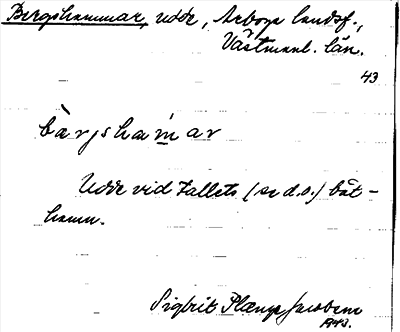 Bergshammar, udde, Arboga landsf.,
Västmanl. län.
43
bàrjshamar
Udde vid Tallets (se d.o.) båt-
hamn.
Sigbrit Plænge Jacobson
1943.